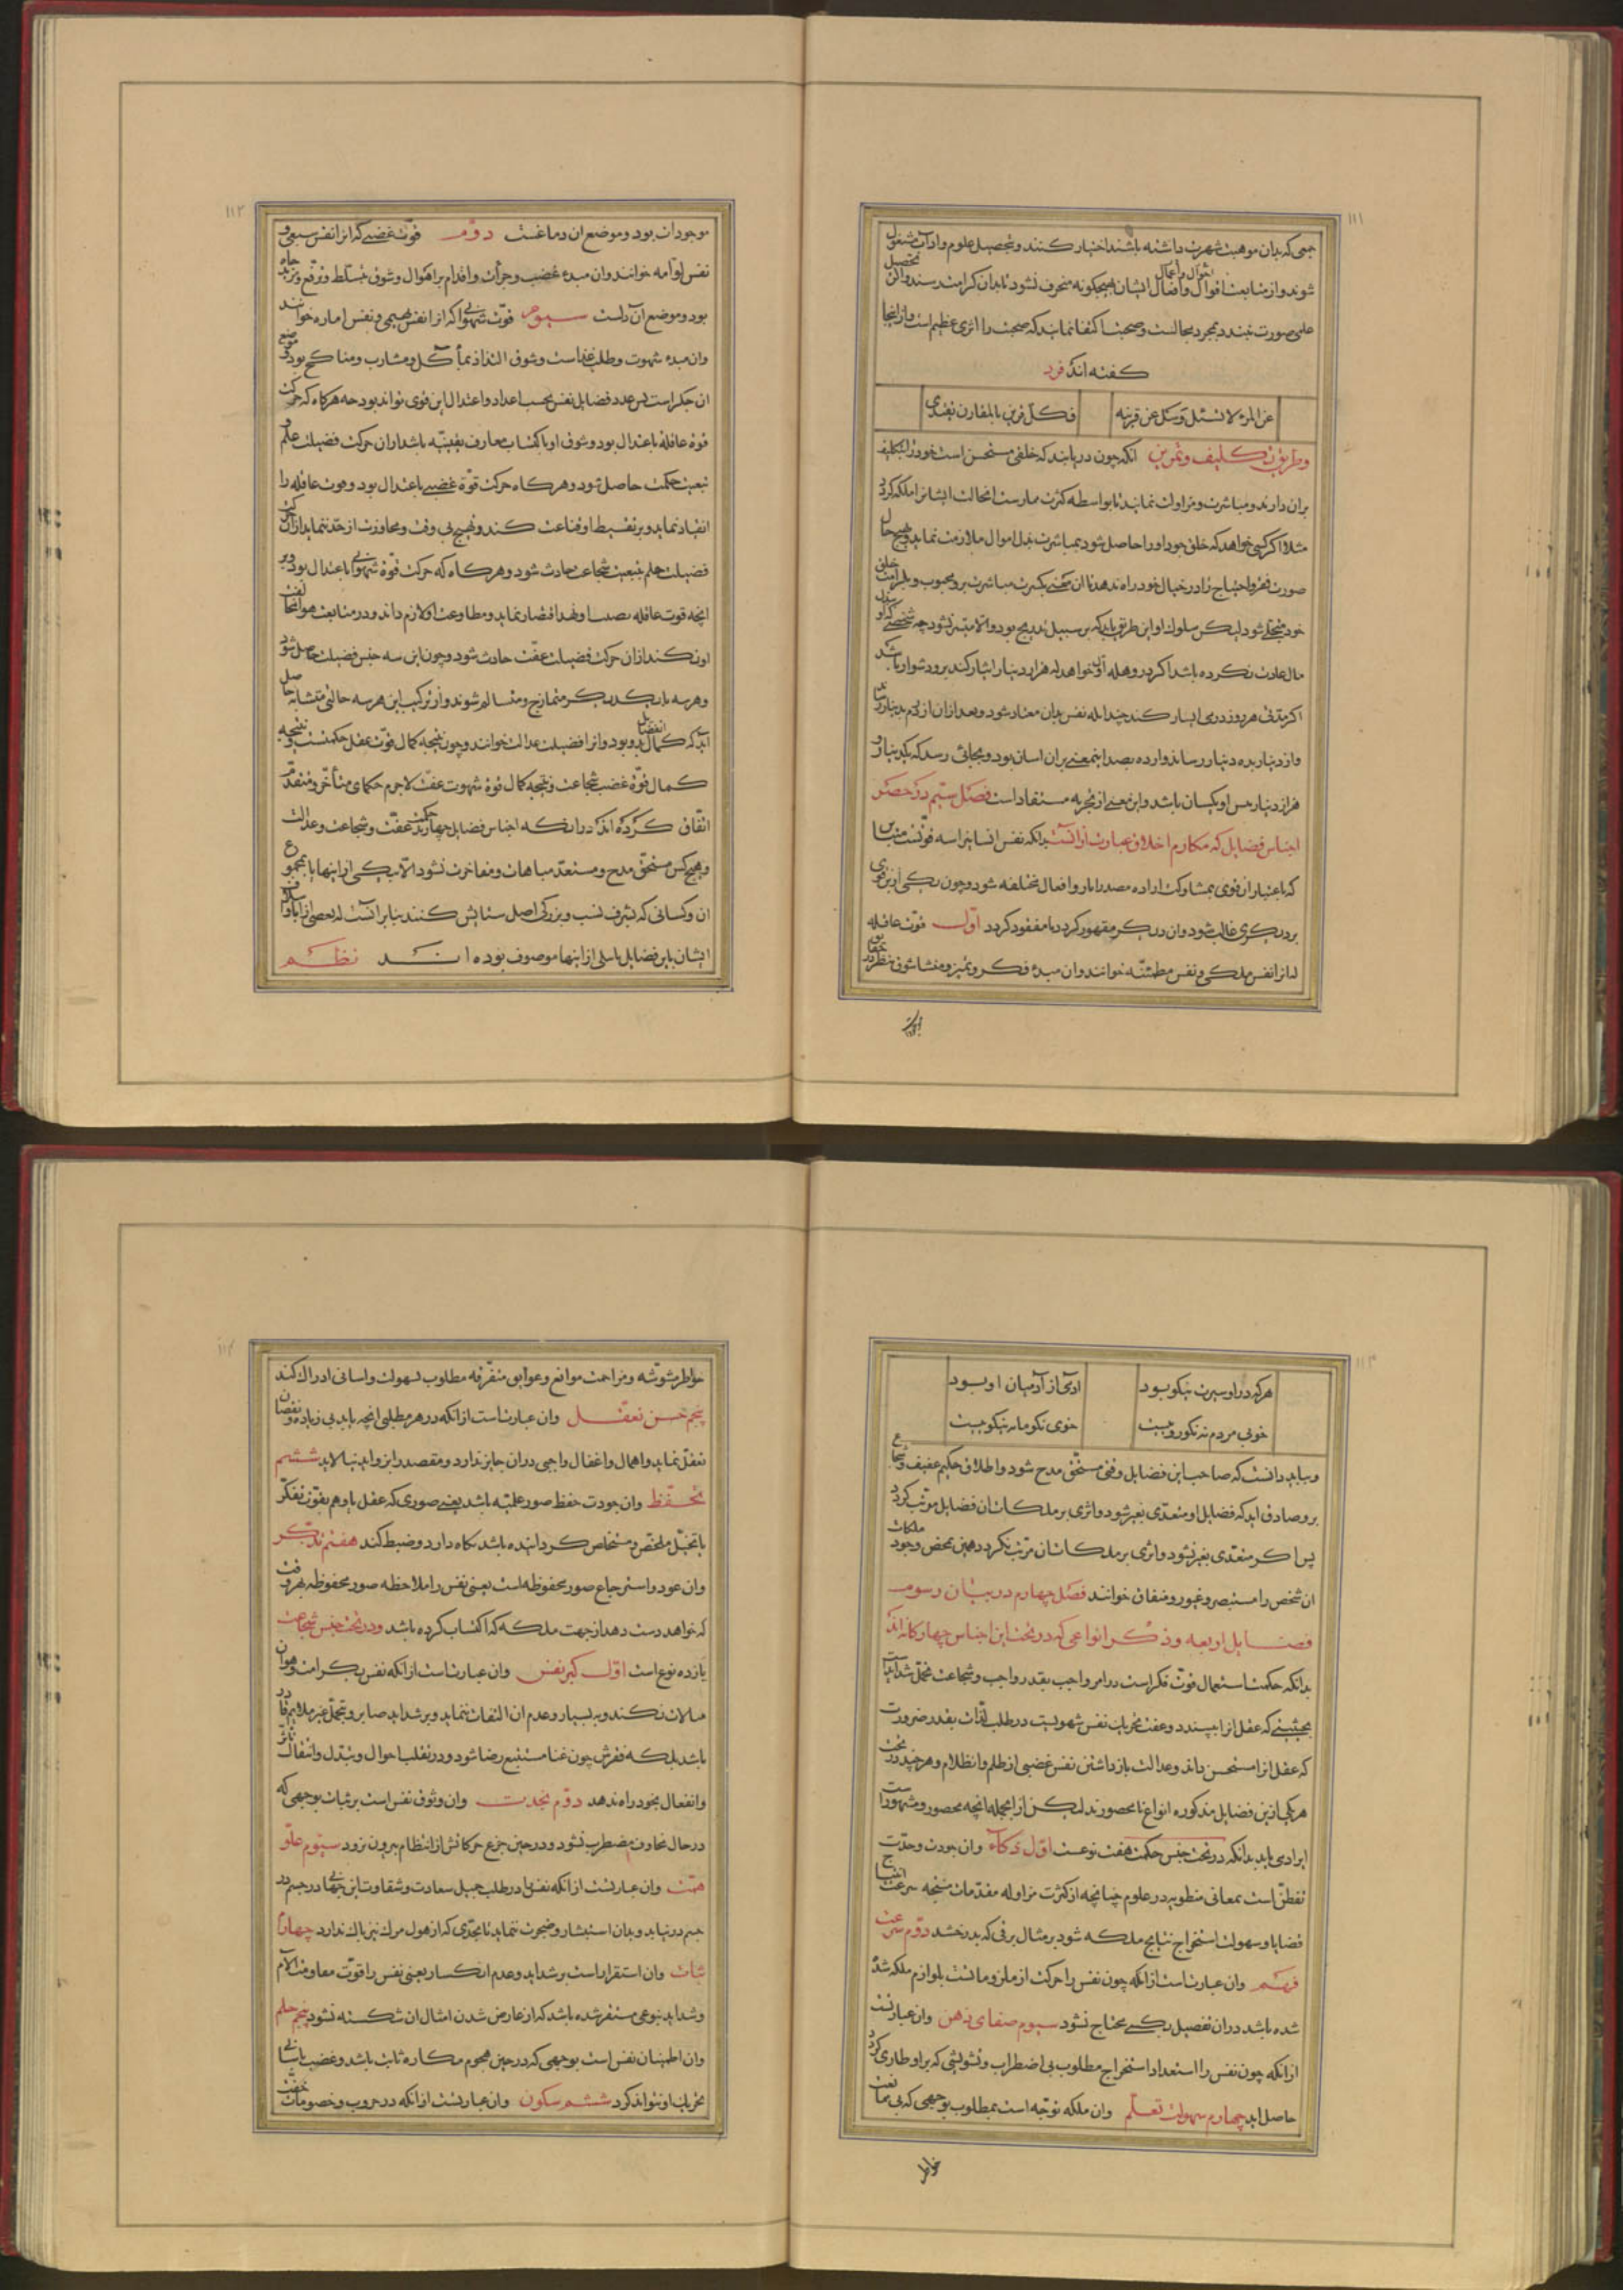 ۱۱۱
جمعی که بدان موهبت شهرت داشته باشند اختیار کنند و بتحصیل علوم و اداب مشغول
شوند و از متابعت اقوال و افعال ایشان بهیچگونه منحرف نشود تا بدان کرامت رسند و الا تحصیل
علمی صورت نبندد بمجرد مجالست و صحبت اکتفا نماید که صحبت را اثری عظیم است و از اینجا
گفته اند فرد
عن المرء لا تسئل و سل عن قرینه
فکل قرین بالمقارن یقتدی
و طریق تکلیف و تمرین انکه چون دریابند که خلقی مستحسن است خود را بتکلیف
بران دارند و مباشرت و مزاولت نمایند تا بواسطه کثرت ممارست انحالت ایشانرا ملکه گردد
مثلا اگر کسی خواهد که خلق جود او را حاصل شود بمباشرت بذل اموال ملازمت نماید و بهیچ حال
صورت فقر و احتیاج را در خیال خود راه ندهد تا ان معنی بکثرت مباشرت برو محبوب و بکرامت خلق
خود متجلی شود لیکن سلوک او این طریق باید که بر سبیل تدریج بود و الا میسر نشود چه شخصی که او بذل
مال عادت نکرده باشد اگر در وهله اولی خواهد که هزار دینار ایثار کند برو دشوار باشد
اگر مدتی هر روز درمی ایثار کند چندانکه نفس بدان معتاد شود و بعد ازان از درم بدینار رساند
و از دینار به ده دینار رساند و از ده بصد اینمعنی بران اسان بود و بجائی رسد که یکدینار و
هزار دینار پس او یکسان باشد و این معنی از تجربه مستفاد است فصل سیم در حصر
اجناس فضایل که مکارم اخلاق عبارت ازانست بدانکه نفس انسانیرا سه قوتست متباین
که باعتبار ان قوی بمشارکت اراده مصدر اثار و افعال مختلفه شود و چون یکی ازین قوی
بر دیگری غالب شود وان دیگر مقهور گردد یا مفقود گردد اول قوت عاقله
که انرا نفس ملکی و نفس مطمئنه خوانند وان مبدء فکر و تمیز و منشا شوق نظر در حقایق
۱۱۲
موجودات بود و موضع ان دماغست دوم قوت غضبی که انرا نفس سبعی و
نفس لوامه خوانند وان مبدء غضب و جرأت و اقدام بر اهوال و شوق تسلط و ترفع و مزید جاه
بود و موضع آن دلست سیوم قوت شهوانی که انرا نفس بهیمی و نفس اماره خوانند
وان مبدء شهوت و طلب غذاست و شوق التذاذ بمآکل و مشارب و مناکح بود و موضع
ان جگر است پس عدد فضایل نفس بحسب اعداد و اعتدال این قوی تواند بود چه هرگاه که حرکت
قوة عاقله باعتدال بود و شوق او باکتساب معارف یقینیه باشد ازان حرکت فضیلت علم و
تبعیت حکمت حاصل شود و هرگاه حرکت قوة غضبی باعتدال بود و قوت عاقله را
انقیاد نماید و بر تقسیط او قناعت کند و تهیج بی وقت و مجاوزت از حد ننماید ازان حرکت
فضیلت حلم بتبعیت شجاعت حادث شود و هرگاه که حرکت قوة شهوانی باعتدال بود و بر
انچه قوت عاقله نصیب او نهد اقتصار نماید و مطاوعت او لازم داند و در متابعت هوا مخالفت
او نکند ازان حرکت فضیلت عفت حادث شود و چون این سه جنس فضیلت حاصل شود
و هر سه با یکدیگر متمازج و متسالم شوند و از ترکیب این هر سه حالتی متشابه حاصل
اید که کمال انفضایل بدو بود و انرا فضیلت عدالت خوانند و چون نتیجه کمال قوت عقل حکمتست و نتیجه
کمال قوة غضب شجاعت و نتیجه کمال قوة شهوت عفت لاجرم حکمای متأخر و متقدم
اتفاق کرده اند درانکه اجناس فضایل چهارند حکمت و عفت و شجاعت و عدالت
و هیچ کس مستحق مدح و مستعد مباهات و مفاخرت نشود الا بیکی از اینها یا بمجموع
ان و کسانی که بشرف نسب و بزرگی اصل ستایش کنند بنا برانست که بعضی از آبا و اسلاف
ایشان باین فضایل یا یکی از اینها موصوف بوده اند نظم
۱۱۳
هرکه در او سیرت نیکو بود
آدمی از آدمیان او بود
خوبی مردم نه نکو روییست
خوی نکو مایه نیکوییست
و بباید دانست که صاحب این فضایل وقتی مستحق مدح شود و اطلاق حکیم عفیف و شجاع
برو صادق اید که فضایل او متعدی بغیر شود و اثری بر ملکات ان فضایل مرتب گردد
پس اگر متعدی بغیر نشود و اثری بر ملکات ان مرتب نگردد همین بمحض وجود ملکات
ان شخص را مستبصر و غیور و منفاق خوانند فصل چهارم در بیان رسوم
فضایل اربعه و ذکر انواعی که در تحت این اجناس چهارگانه اند
بدانکه حکمت استعمال قوت فکر است در امر واجب بقدر واجب و شجاعت تحمل شداید است
بحیثیتی که عقل انرا بپسندد و عفت نفس شهویست در طلب لذات بقدر ضرورت
که عقل انرا مستحسن داند و عدالت بازداشتن نفس غضبی از ظلم و انظلام و هر چند در تحت
هر یکی ازین فضایل مذکوره انواع نامحصورند لیکن از انجمله انچه محصور و مشهور است
ایرادی باید بدانکه در تحت جنس حکمت هفت نوعست اول ذکاء وان جودت و حدت
تفطن است بمعانی منطویه در علوم چنانچه از کثرت مزاوله مقدمات منتجه سرعت انتاج
قضایا و سهولت استخراج نتایج ملکه شود بر مثال برقی که بدرخشد دوم سرعت
فهم وان عبارتست ازانکه چون نفس را حرکت از ملزومات بلوازم ملکه شد
شده باشد دران بتفصیل یکسی محتاج نشود سیوم صفای ذهن وان عبارتست
ازانکه چون نفس را استعداد استخراج مطلوب بی اضطراب و تشویشی که برو طاری گردد
حاصل اید چهارم سهولت تعلم وان ملکه توجه است بمطلوب بوجهی که بی ممانعت
خواطر
۱۱۴
خواطر مشوشه و مزاحمت موانع و عوایق متفرقه مطلوب بسهولت و اسانی ادراک کند
پنجم حسن تعقل وان عبارتست ازانکه در هر مطلبی انچه باید بی زیاده و نقصان
تعقل نماید و اهمال و اغفال واجبی دران جایز ندارد و مقصد را بزواید نیالاید ششم
تحفظ وان جودت حفظ صور علمیه باشد یعنی صوری که عقل یا وهم بقوت تفکر
یا تخیل ملخص و مستخلص گردانیده باشد نگاه دارد و ضبط کند هفتم تذکر
وان عود و استرجاع صور محفوظه است یعنی نفس را ملاحظه صور محفوظه بهر وقت
که خواهد دست دهد از جهت ملکه که اکتساب کرده باشد و در تحت جنس شجاعت
یازده نوع است اول کبر نفس وان عبارتست ازانکه نفس بکرامت و هوان
مبالات نکند و به یسار و عدم ان التفات ننماید و بر شداید صابر و بتحمل غیر ملایم قادر
باشد بلکه فقرش چون غنا مستتبع رضا شود و در تقلب احوال و تبدل و انتقال تأثر
و انفعال بخود راه ندهد دوم نجدت وان وثوق نفس است بر ثبات بوجهی که
در حال مخاوف مضطرب نشود و در حین جزع حرکاتش از انتظام بیرون نرود سیوم علو
همت وان عبارتست ازانکه نفس در طلب جمیل سعادت و شقاوت این جهانی در
چشم درنیاید و بدان استبشار و ضجرت ننماید تا بحدی که از هول مرک نیز باک ندارد چهارم
ثبات وان استقرار است بر شداید و عدم انکسار یعنی نفس را قوت مقاومت آلام
و شداید بنوعی مستقر شده باشد که از عارض شدن امثال ان شکسته نشود پنجم حلم
وان اطمینان نفس است بوجهی که در حین هجوم مکاره ثابت باشد و غضب باسانی
تحریک او نتواند کرد ششم سکون وان عبارتست ازانکه در حروب و خصومات خفت